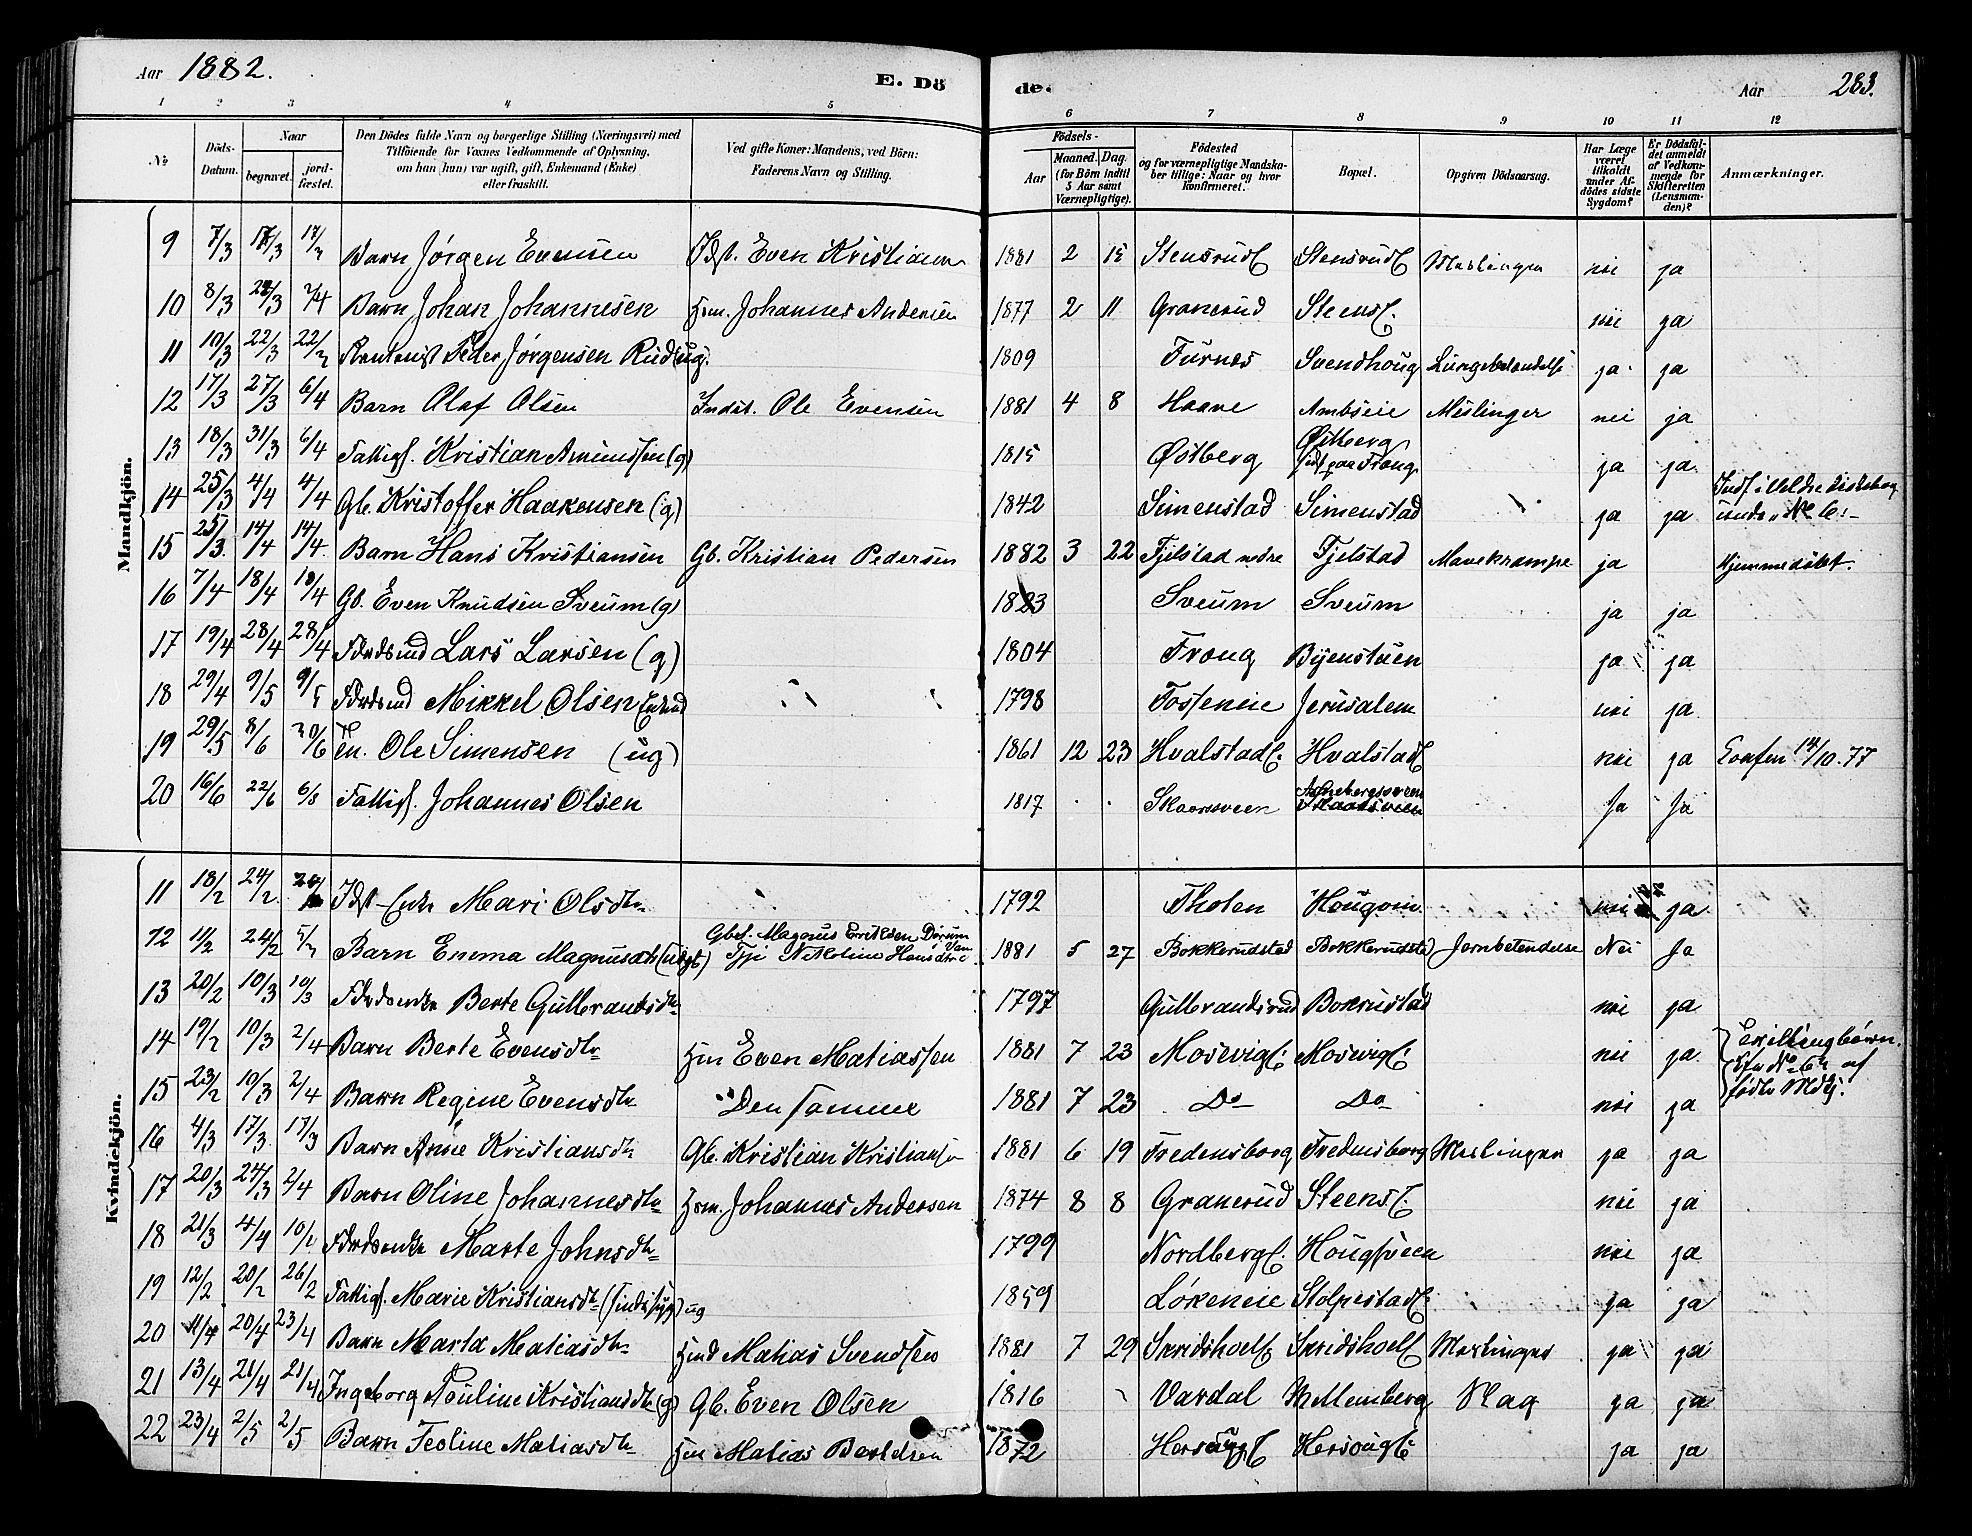 Aar 1882.
E. Dö
de.
Aar 283.
1 2 3 4 5 6 7 8 9 10 11 12
№
Döds-Datum.
Naar
begravet.
jordfæstet.
Den Dödes fulde Navn og borgerlige Stilling (Næringsvei) med
Tilföiende for Voxnes Vedkommende af Oplysning,
om han (hun) var ugift, gift, Enkemand (Enke)
eller fraskilt.
Ved gifte Koner: Mandens, ved Börn:
Faderens Navn og Stilling.
Födsels-
Aar
Maaned. Dag.
(for Börn indtil
5 Aar samt
Værnepligtige).
Födested
og for værnepligtige Mandskaber tillige: Naar og hvor
konfirmeret.
Bopæl.
Opgiven Dödsaarsag.
Har Læge
været
tilkaldt
under Afdödes sidste
Sygdom?
Er Dödsfaldet anmeldt
af Vedkommende for
Skifteretten
(Lensmanden)?
Anmærkninger.
Mandkjön.
9 7/3 17/3 17/3 Barn Jørgen Evensen Idst. Even Kristiansen 1881 2 15 Stensrud Stensrud Meslinger nei ja
10 8/3 2/4 Barn Johan Johannesen Hsm. Johannes Andersen 1877 2 11 Granerud Steens. nei ja
11 10/3 22/3 22/3 Peder Jørgensen Rud (ug). 1809 Furnes Svendhoug Lungebetændelse ja ja
12 17/3 27/3 6/4 Barn Olaf Olsen Indst. Ole Evensen 1881 4 8 Haave Ambseie Meslinger nei ja
13 18/3 31/3 6/4 Fattigl. Kristian Amundsen (g) 1815 Østberg Østberg sidst paa Frang ja ja
14 25/3 4/4 4/4 Gb. Kristoffer Haakensen (g) 1842 Simenstad Simenstad ja ja Indf. i Veldre Kirkebog under № 6
15 25/3 14/4 14/4 Barn Hans Kristiansen Gb. Kristian Pedersen 1882 3 22 Fjelstad nedre Fjelstad Mavekrampe ja Hjemmedøbt.
16 7/4 18/4 18/4 Gb. Even Knudsen Sveum (g) 1823 Sveum Sveum ja ja
17 19/4 28/4 28/4 Lars Larsen (g) 1804 Frang Byenstuen ja ja
18 29/4 9/5 9/5 Mikkel Olsen Enkmd 1798 Fosseneie Jerusalem nei ja
19 29/5 8/6 Ole Simensen (ug) 1861 12 23 Hvalstad Hvalstad nei ja Confer 14/10.77
20 16/6 22/6 6/8 Fattigl. Johannes Olsen 1817 Skaarsveen Skaarsveen Ja Ja
Kvindekjön.
11 18/2 24/2 Idst-Enke Mari Olsdtr 1792 Tholen Hougvin nei ja
12 11/2 24/2 5/3 Barn Emma Magnusdtr (uægt) Gbst. Magnus Eriksen Dørum, Tpi Nikoline Hansdtr 1881 5 27 Bokkerudstad Bokkerudstad Jernbetendelse Nei Ja
13 20/2 10/3 10/3 Berte Gulbrandsdtr 1797 Gulbrandsrud Bokrustad nei ja
14 19/2 10/3 2/4 Barn Berte Evensdtr Hm Even Matiassen 1881 7 23 Mosevig Moswig nei ja Tvillingbørn № 6
15 23/2 10/3 2/4 Barn Regine Evensdtr Den samme 1881 7 23 Do Do nei ja
16 4/3 17/3 17/3 Barn Anne Kristiansdtr Gb. Kristian Kristiansen 1881 6 19 Fredensborg Fredensborg Meslinger ja ja
17 20/3 24/3 2/4 Barn Oline Johannesdtr Hsm. Johannes Andersen 1874 8 8 Granerud Steens. nei ja
18 21/3 4/4 Marte Johnsdtr 1799 Nordberg Hougsveen nei ja
19 12/2 20/2 26/2 Fattigl. Marie Kristiansdtr (sindssyg) ug 1859 Løkeneie Stolpestad ja ja
20 11/4 20/4 23/4 Barn Marta Matiasdtr Matias Svendsen 1881 7 29 Skridshol Skridshol Meslinger ja ja
21 13/4 21/4 21/4 Ingeborg Pouline Kristiansdtr (g) Gb. Even Olsen 1816 Vardal Mellemberg Slag ja ja
22 23/4 2/5 2/5 Barn Teoline Matiasdtr Hm Matias Bertelsen 1872 Hersoug Hersoug ja ja